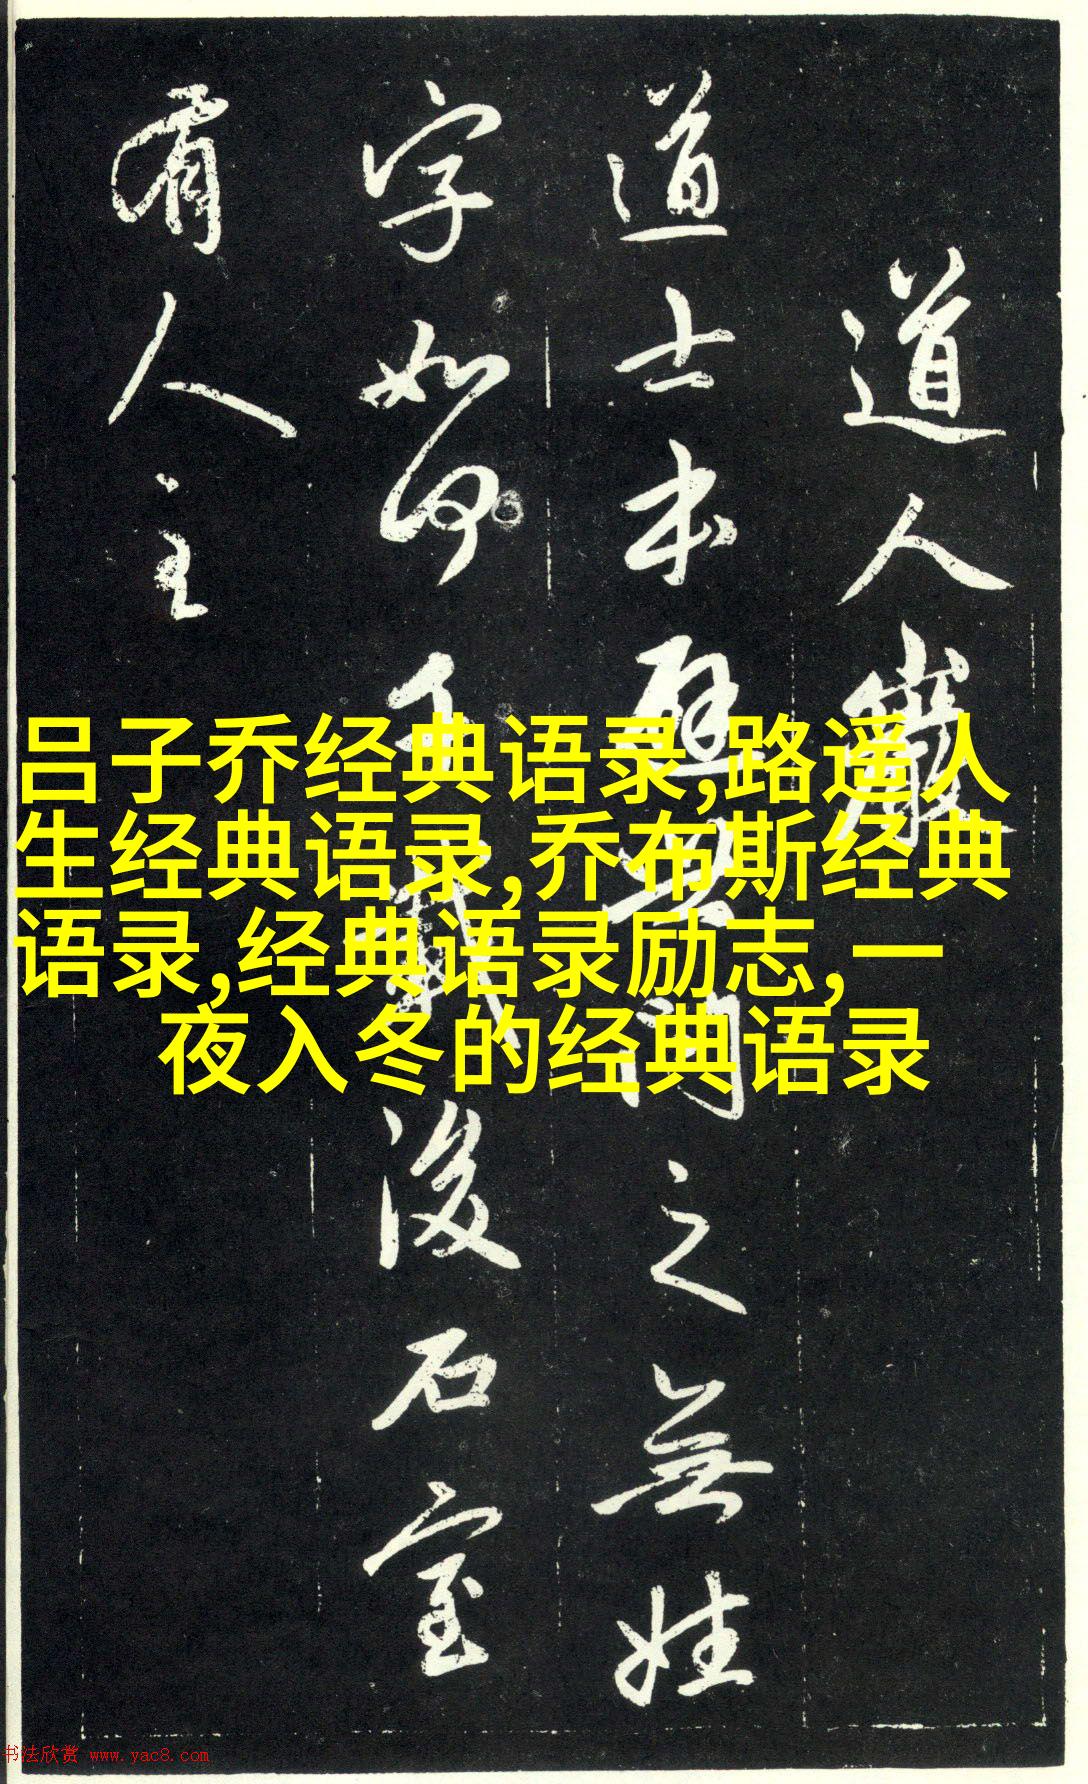 道人巖
道士本之無姓
字如何千載後石室
有人主
吕子乔经典语录,路遥人
生经典语录,乔布斯经典
语录,经典语录励志,一
夜入冬的经典语录
书法欣赏 www.yac8.com